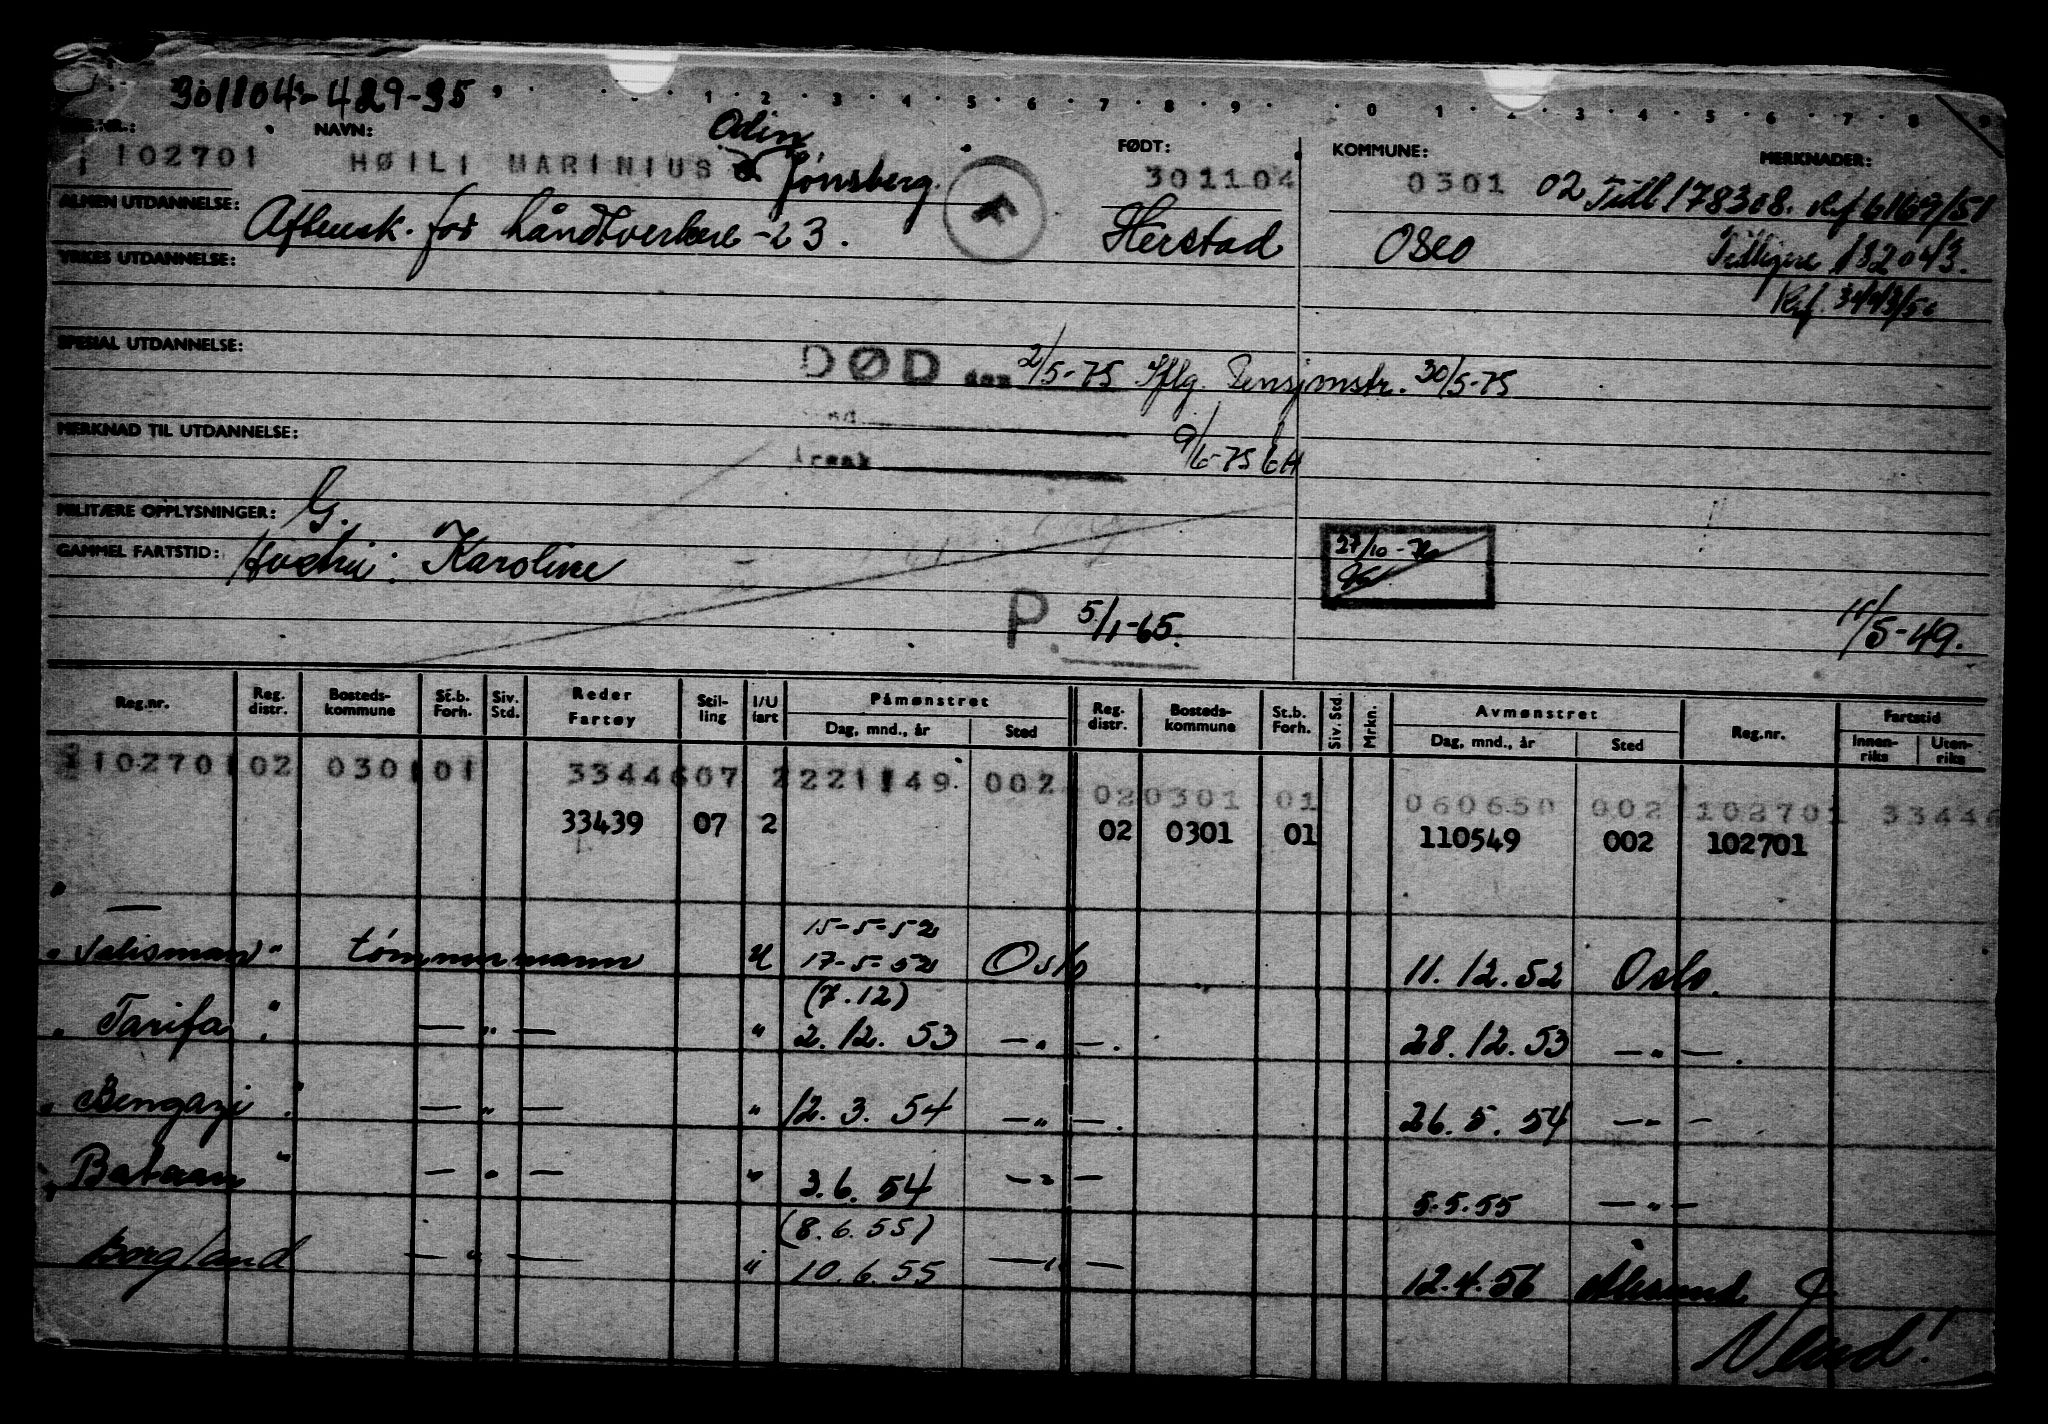 301104-429-35
1 2 3 4 5 6 7 8 9 0 1 2 3 4 5 6 7 8 9
NAVN: Odin FØDT: KOMMUNE: MERKNADER:
102701 HØILI MARINIUS Jónsberg. F 301104 0301 02 Till 178308. Ref 6169/51
ALMEN UTDANNELSE: Aftensk. for håndtverkere -23. Herstad Oslo Tidligere 182043.
YRKES UTDANNELSE:
Ref.
SPESIAL UTDANNELSE:
DØD den 2/5-75 Iflg. Pensjonstr. 30/5-75
MERKNAD TIL UTDANNELSE:
9/6-75
Årsak
MILITÆRE OPPLYSNINGER: G.
GAMMEL FARTSTID: Hustru: Karoline
27/10-
P. 5/1-65. 11/5-49.
Reg.nr. Reg. distr. Bosteds-kommune St.b. Forh. Siv. Std. Reder Fartøy Stil-ling I/U fart Påmønstret Dag, mnd., år Sted Reg. distr. Bosteds-kommune St.b. Forh. Siv. Std. Mrkn. Avmønstret Dag, mnd., år Sted Reg.nr. Fartstid Innen-riks Uten-riks
102701 02 0301 01 33446 07 2 221149 002 02 0301 01 060650 002 102701 33446
33439 07 2 02 0301 01 110549 002 102701
15-5-52
"Talisman" tømmermann U 17-5-52 Oslo 11.12.52 Oslo.
(7.12)
"Tarifa" — " — " 2.12.53 — " —. 28.12.53 — " —.
"Bengazi" — " — " 12.3.54 — " —. 26.5.54 — " —
"Bataan" — " — " 3.6.54 — " — 5.5.55 — " —
(8.6.55)
Borgland — " — " 10.6.55 — " — 12.4.56 Ålesund
Vend!